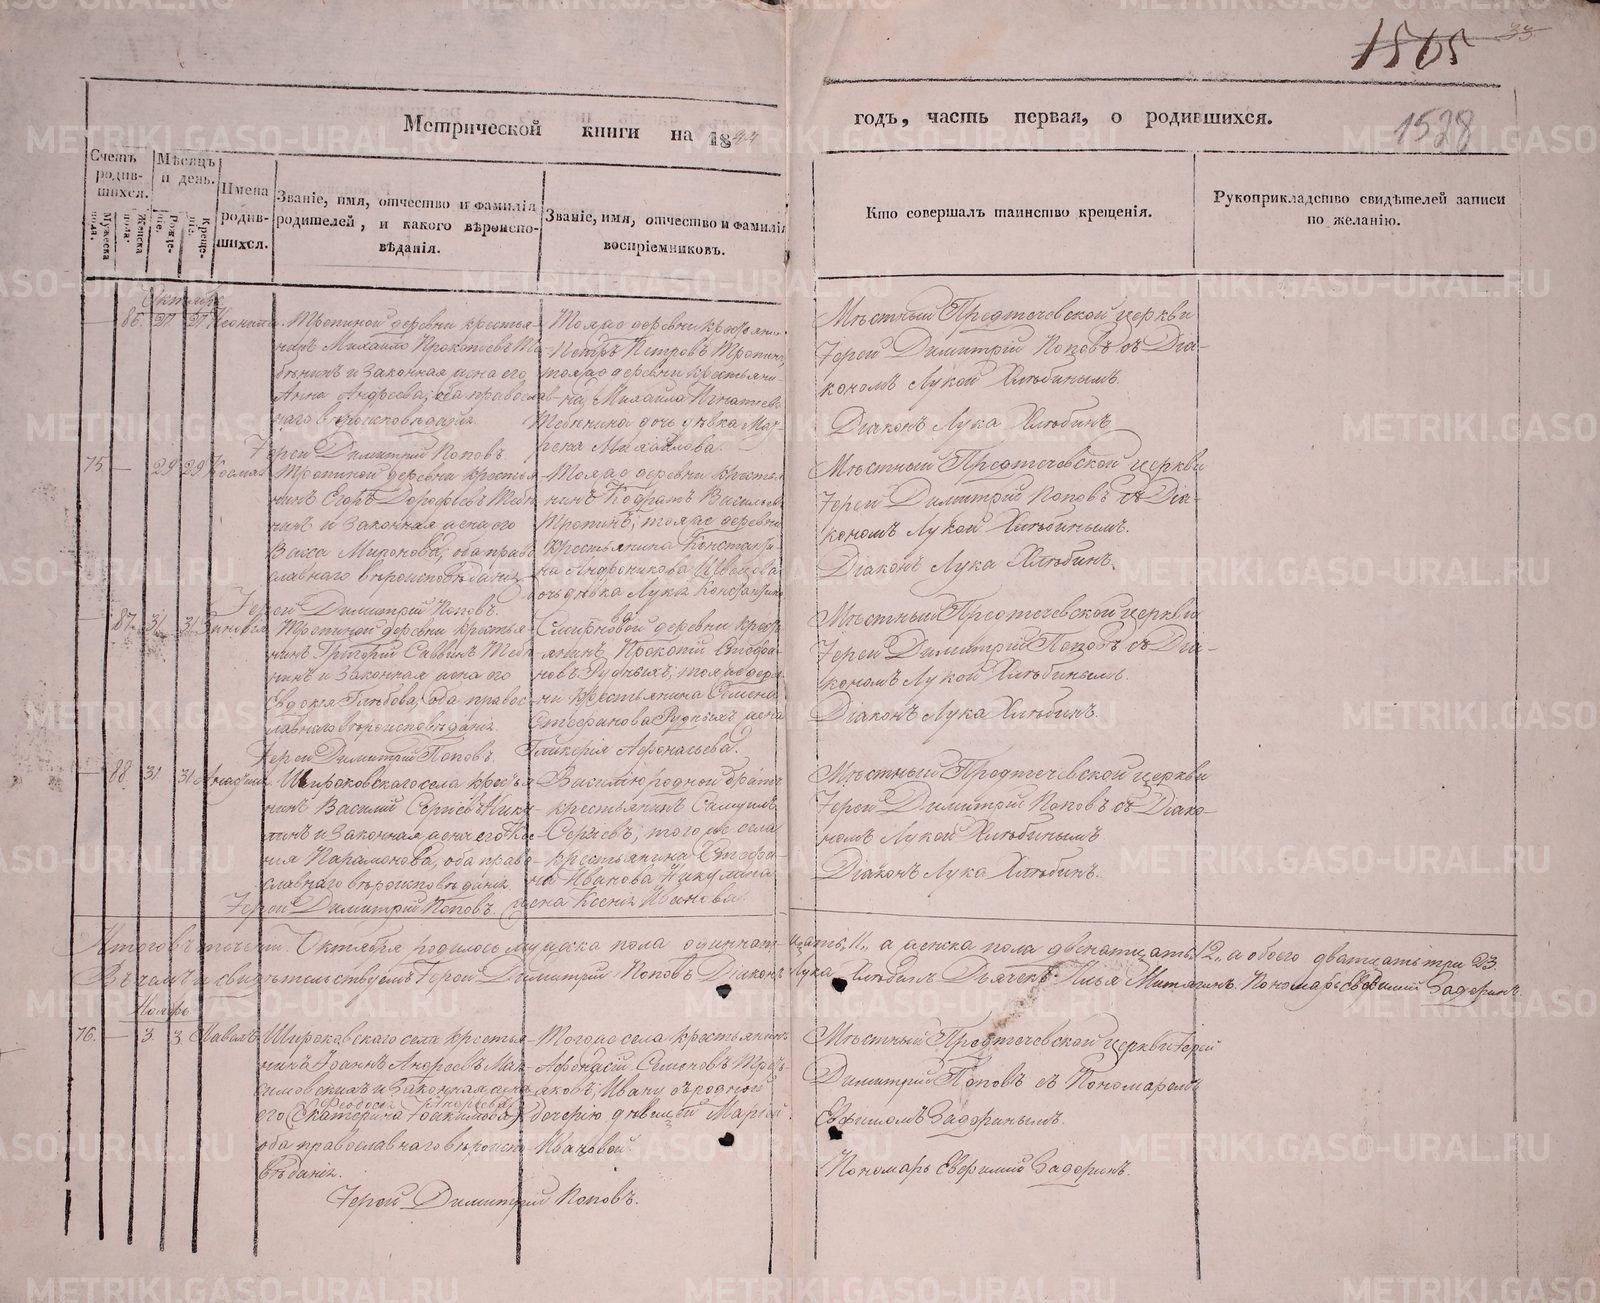 1505
33
1528
Метрической книги на 1844 годъ, часть первая, о родившихся.
Счетъ родив-
шихся.
Мужеска пола.
Женска пола.
Мѣсяцъ и день.
Рожде-
нія.
Креще-
нія.
Имена родив-
шихся.
Званіе, имя, отчество и фамилія
родителей, и какого вѣроиспо-
вѣданія.
Званіе, имя, отчество и фамилія
воспріемниковъ.
Кто совершалъ таинство крещенія.
Рукоприкладство свидѣтелей записи
по желанію.
Октября
86. 27 27
Тропиной деревни крестья-
нинъ Михаило Прокопьевъ
и законная жена его
Анна Андреева, оба православ-
наго вѣроисповѣданія.
Іерей Димитрій Поповъ.
Тояже деревни крестьянинъ
Петръ Петровъ Тропинъ,
тояже деревни крестьяни-
на Михаила Игнатьева
дочь дѣвка
Михайлова.
Мѣстный Предтечевской церкви
Іерей Димитрій Поповъ съ Діа-
кономъ Лукой Хлѣбинымъ.
Діаконъ Лука Хлѣбинъ.
75 — 29 29 Косма
Тропиной деревни крестья-
нинъ Егоръ Дорофѣевъ
и законная жена его
Васса Миронова, оба право-
славнаго вѣроисповѣданія.
Іерей Димитрій Поповъ.
Тояже деревни крестья-
нинъ Кодратъ Васильевъ
Тропинъ, тояже деревни
крестьянина Константи-
на Андроникова
дочь дѣвка
Мѣстный Предтечевской церкви
Іерей Димитрій Поповъ съ Діа-
кономъ Лукой Хлѣбинымъ.
Діаконъ Лука Хлѣбинъ.
87. 31 31 Зиновія
Тропиной деревни крестья-
нинъ Григорій Саввинъ
и законная жена его
Евдокія Глѣбова, оба правос-
лавнаго вѣроисповѣданія.
Іерей Димитрій Поповъ.
Смирновой деревни крест-
янинъ Стефа-
новъ Рудныхъ, тояже дере-
ни крестьянина Семена
Стефанова Рудныхъ жена
Гликерія Афонасьева.
Мѣстный Предтечевской церкви
Іерей Димитрій Поповъ съ Діа-
кономъ Лукой Хлѣбинымъ.
Діаконъ Лука Хлѣбинъ.
— 88 31 31
Широковскаго села крестья-
нинъ Василій Сергѣевъ Нику-
линъ и законная жена его Кс-
нія Парамонова, оба право-
славнаго вѣроисповѣданія.
Іерей Димитрій Поповъ.
Василію родной братъ
крестьянинъ Самуилъ
Сергѣевъ, тогоже села
крестьянина Стефа-
на Иванова Никулина
жена Ксенія Иванова.
Мѣстный Предтечевской церкви
Іерей Димитрій Поповъ съ Діако-
номъ Лукой Хлѣбинымъ
Діаконъ Лука Хлѣбинъ.
Итого въ теченіи Октября родилось мужеска пола одиннадцать 11, а женска пола двенатцать 12, а обоего дватцать три 23.
Въ чемъ и свидѣтельствуемъ Іерей Димитрій Поповъ Діаконъ Лука Хлѣбинъ Дьячекъ Илья Митягинъ. Пономарь Евфимій Задоринъ.
Ноябрь
76. — 3. 3. Павелъ
Широковскаго села крестья-
нинъ Іоаннъ Андреевъ Мак-
симовскихъ и законная жена
его (Екатерина Іоакимова) Феодосья Андреева
оба православнаго вѣроиспо-
вѣданія.
Іерей Димитрій Поповъ.
Тогоже села крестьянинъ
Афонасій Семеновъ Треть-
яковъ, Ивану съ родной
дочерію дѣвицей Марьей
Ивановой.
Мѣстный Предтечевской церкви Іерей
Димитрій Поповъ съ Пономаремъ
Евфимомъ Задоринымъ.
Пономарь Евфимій Задоринъ.
METRIKI.GASO-URAL.RU